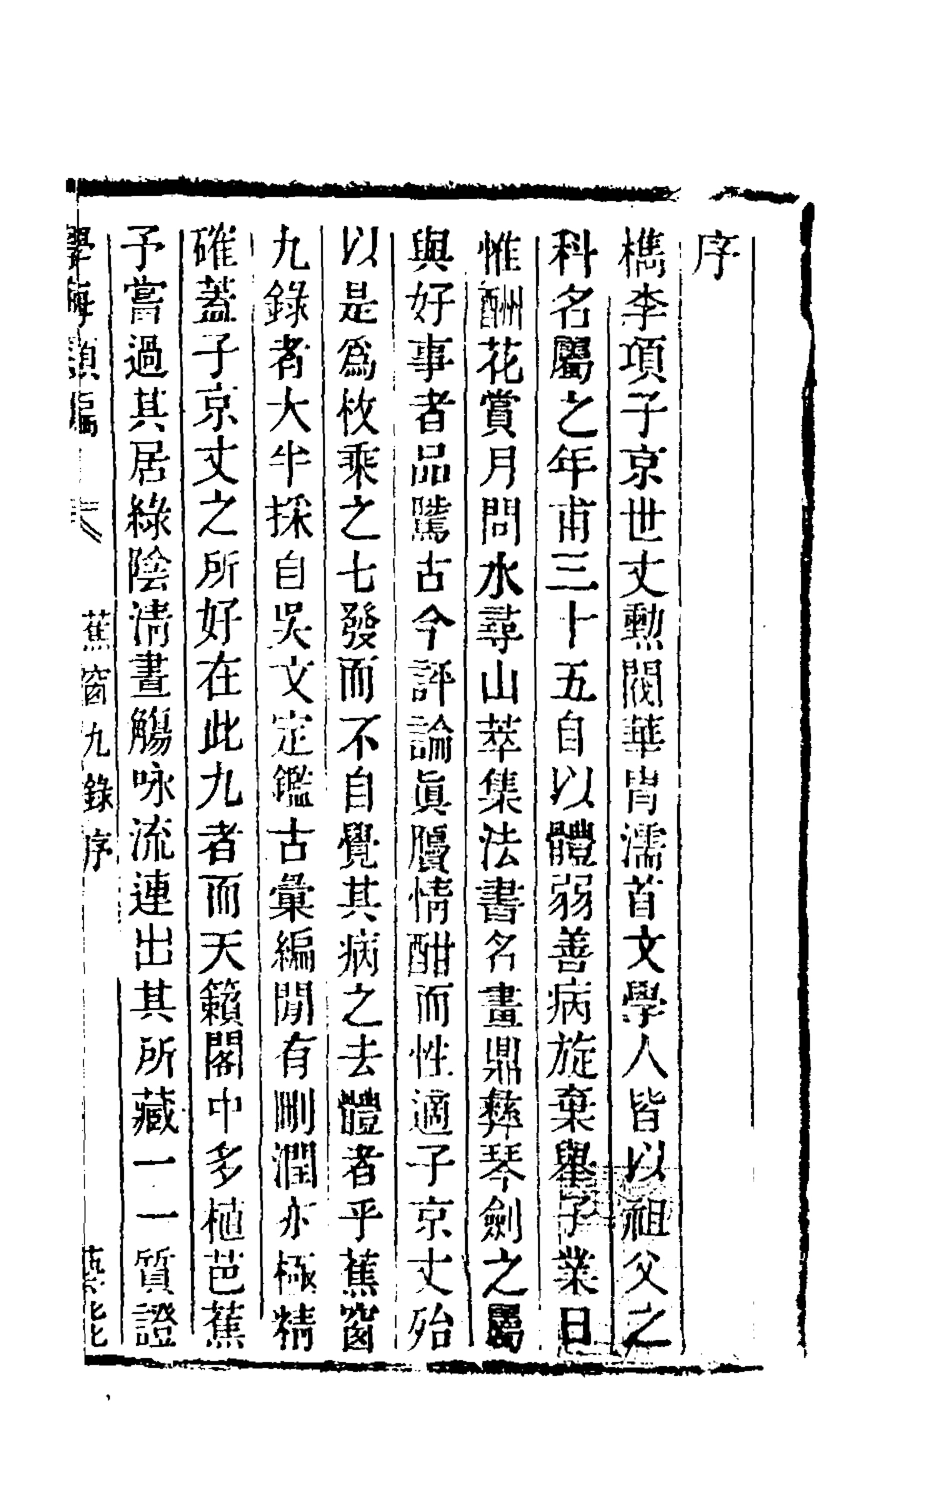 序
檇李項子京世丈勲閥華胄濡首文學人皆以祖父之
科名屬之年甫三十五自以體弱善病旋棄舉子業日
惟酬花賞月問水尋山萃集法書名畫鼎彝琴劍之屬
與好事者品隲古今評論眞贋情酣而性適子京丈殆
以是爲枚乘之七發而不自覺其病之去體者乎蕉窗
九錄者大半採自吳文定鑑古彙編閒有刪潤亦極精
確蓋子京丈之所好在此九者而天籟閣中多植芭蕉
予嘗過其居綠陰淸晝觴咏流連出其所藏一一質證
學海類編 蕉窗九錄序 藝能